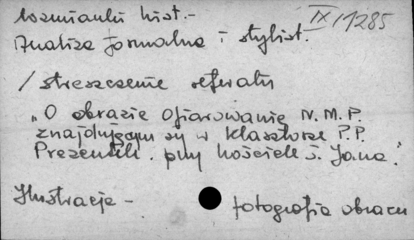 Rozmianki hist. -
IX/1285
Analiza formalna i stylist.
/ streszczenie referatu
„O obrazie Ofiarowanie N.M.P.
znajdującym się w klasztorze P.P.
Prezentek. przy kościele ś. Jana."
Ilustracja - fotografia obrazu